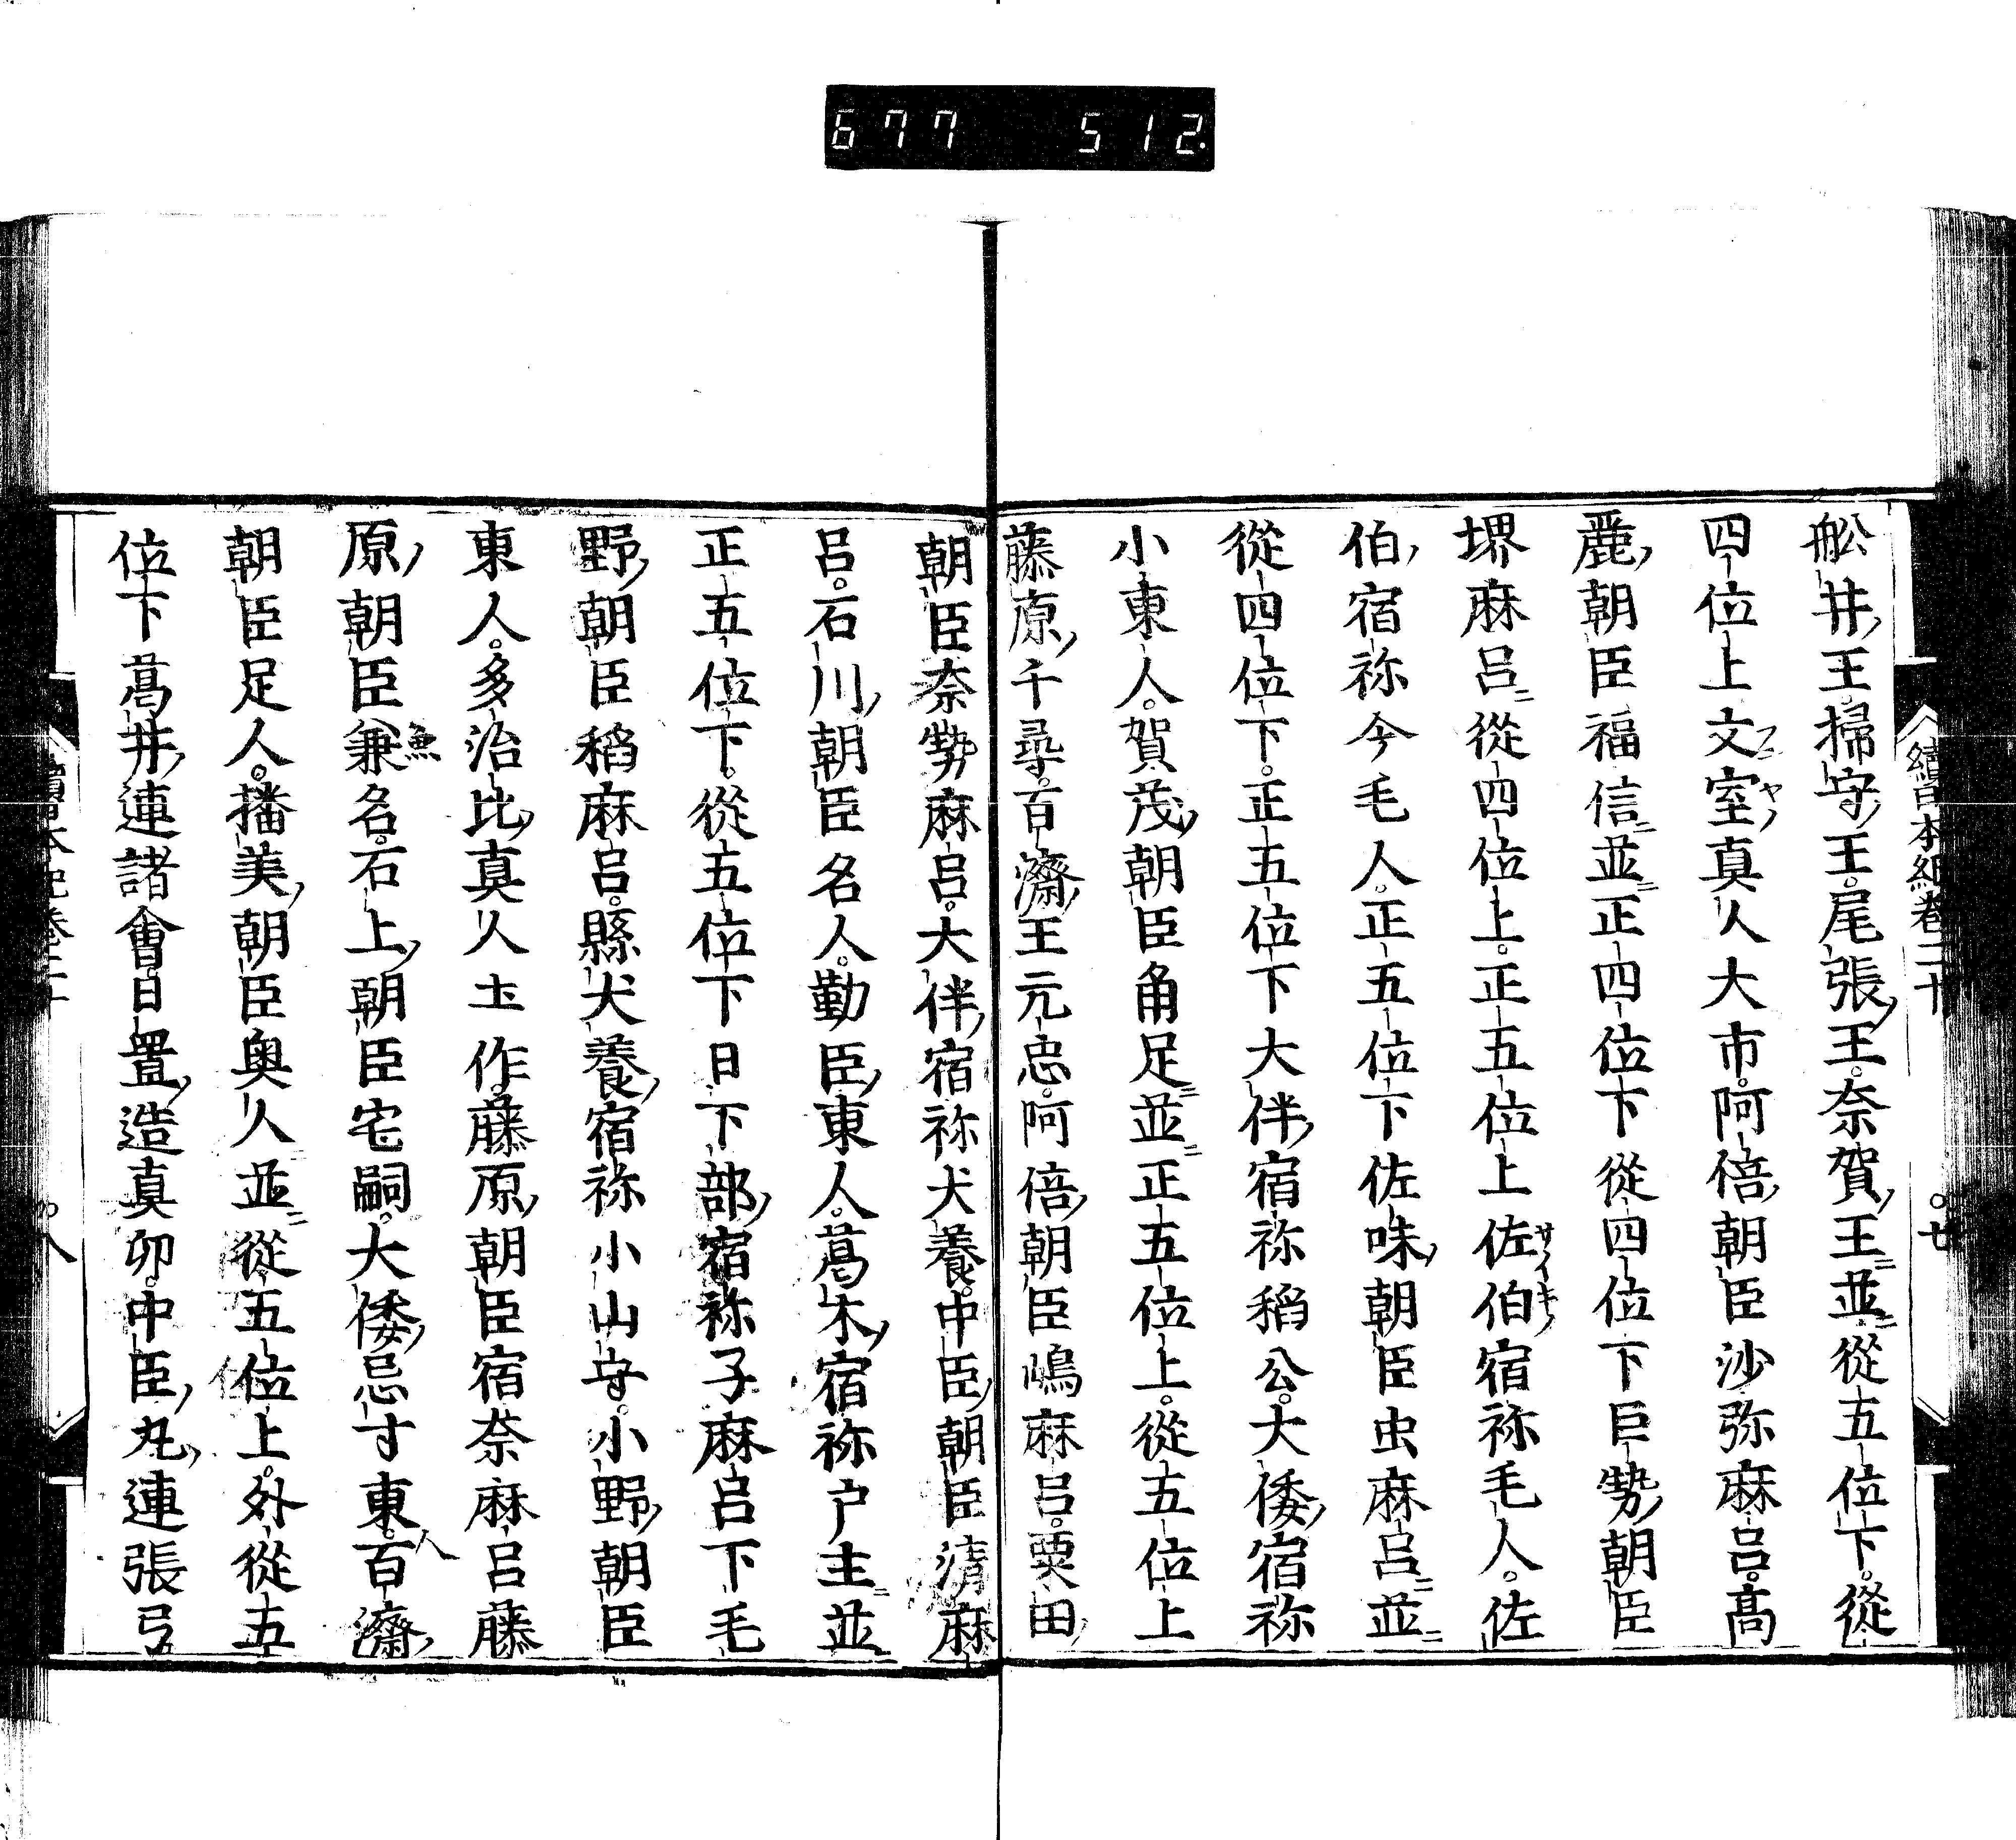 677 512.
續日本紀卷二十 廿
舩井王。掃守王。尾張王。奈賀王並從五位下。從
四位上文室真人大市。阿倍朝臣沙弥麻呂。髙
麗朝臣福信並正四位下從四位下巨勢朝臣
堺麻呂從四位上。正五位上佐伯宿祢毛人。佐
伯宿祢今毛人。正五位下佐味朝臣虫麻呂並
從四位下。正五位下大伴宿祢稻公。大倭宿祢
小東人。賀茂朝臣角足並正五位上。從五位上
藤原千尋。百濟王元忠。阿倍朝臣嶋麻呂。粟田
朝臣奈勢麻呂。大伴宿祢犬養。中臣朝臣清麻
呂。石川朝臣名人。勤臣東人。葛木宿祢戸主並
正五位下。從五位下日下部宿祢子麻呂下毛
野朝臣稻麻呂。縣犬養宿祢小山守。小野朝臣
東人。多治比真人土作。藤原朝臣宿奈麻呂藤
原朝臣兼名。石上朝臣宅嗣。大倭忌寸東。百濟
朝臣足人。播美朝臣奥人並從五位上。外從五
位下葛井連諸會。日置造真卯。中臣丸連張弓